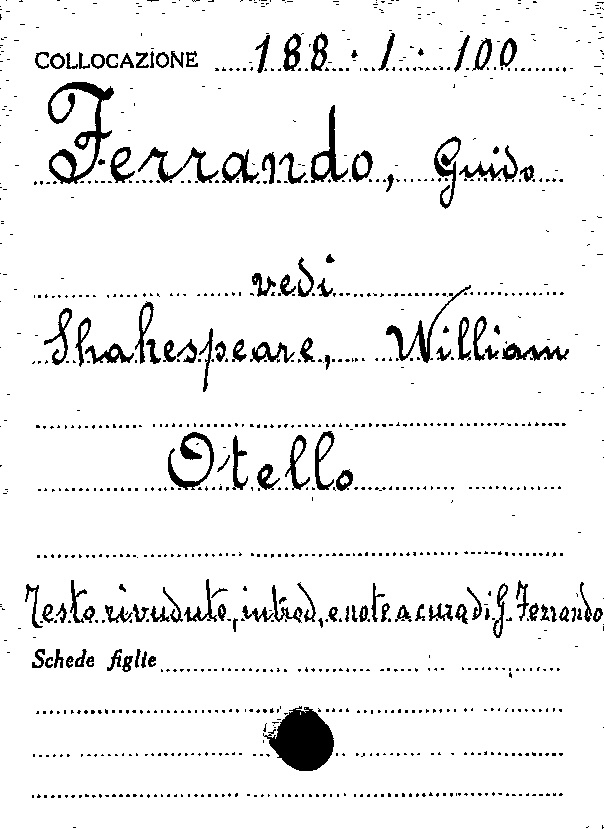 COLLOCAZIONE 188 · 1 · 100
Ferrando, Guido
vedi
Shakespeare, William
Otello
Testo rivuduto, introd, e note a cura di G. Ferrando
Schede figlie